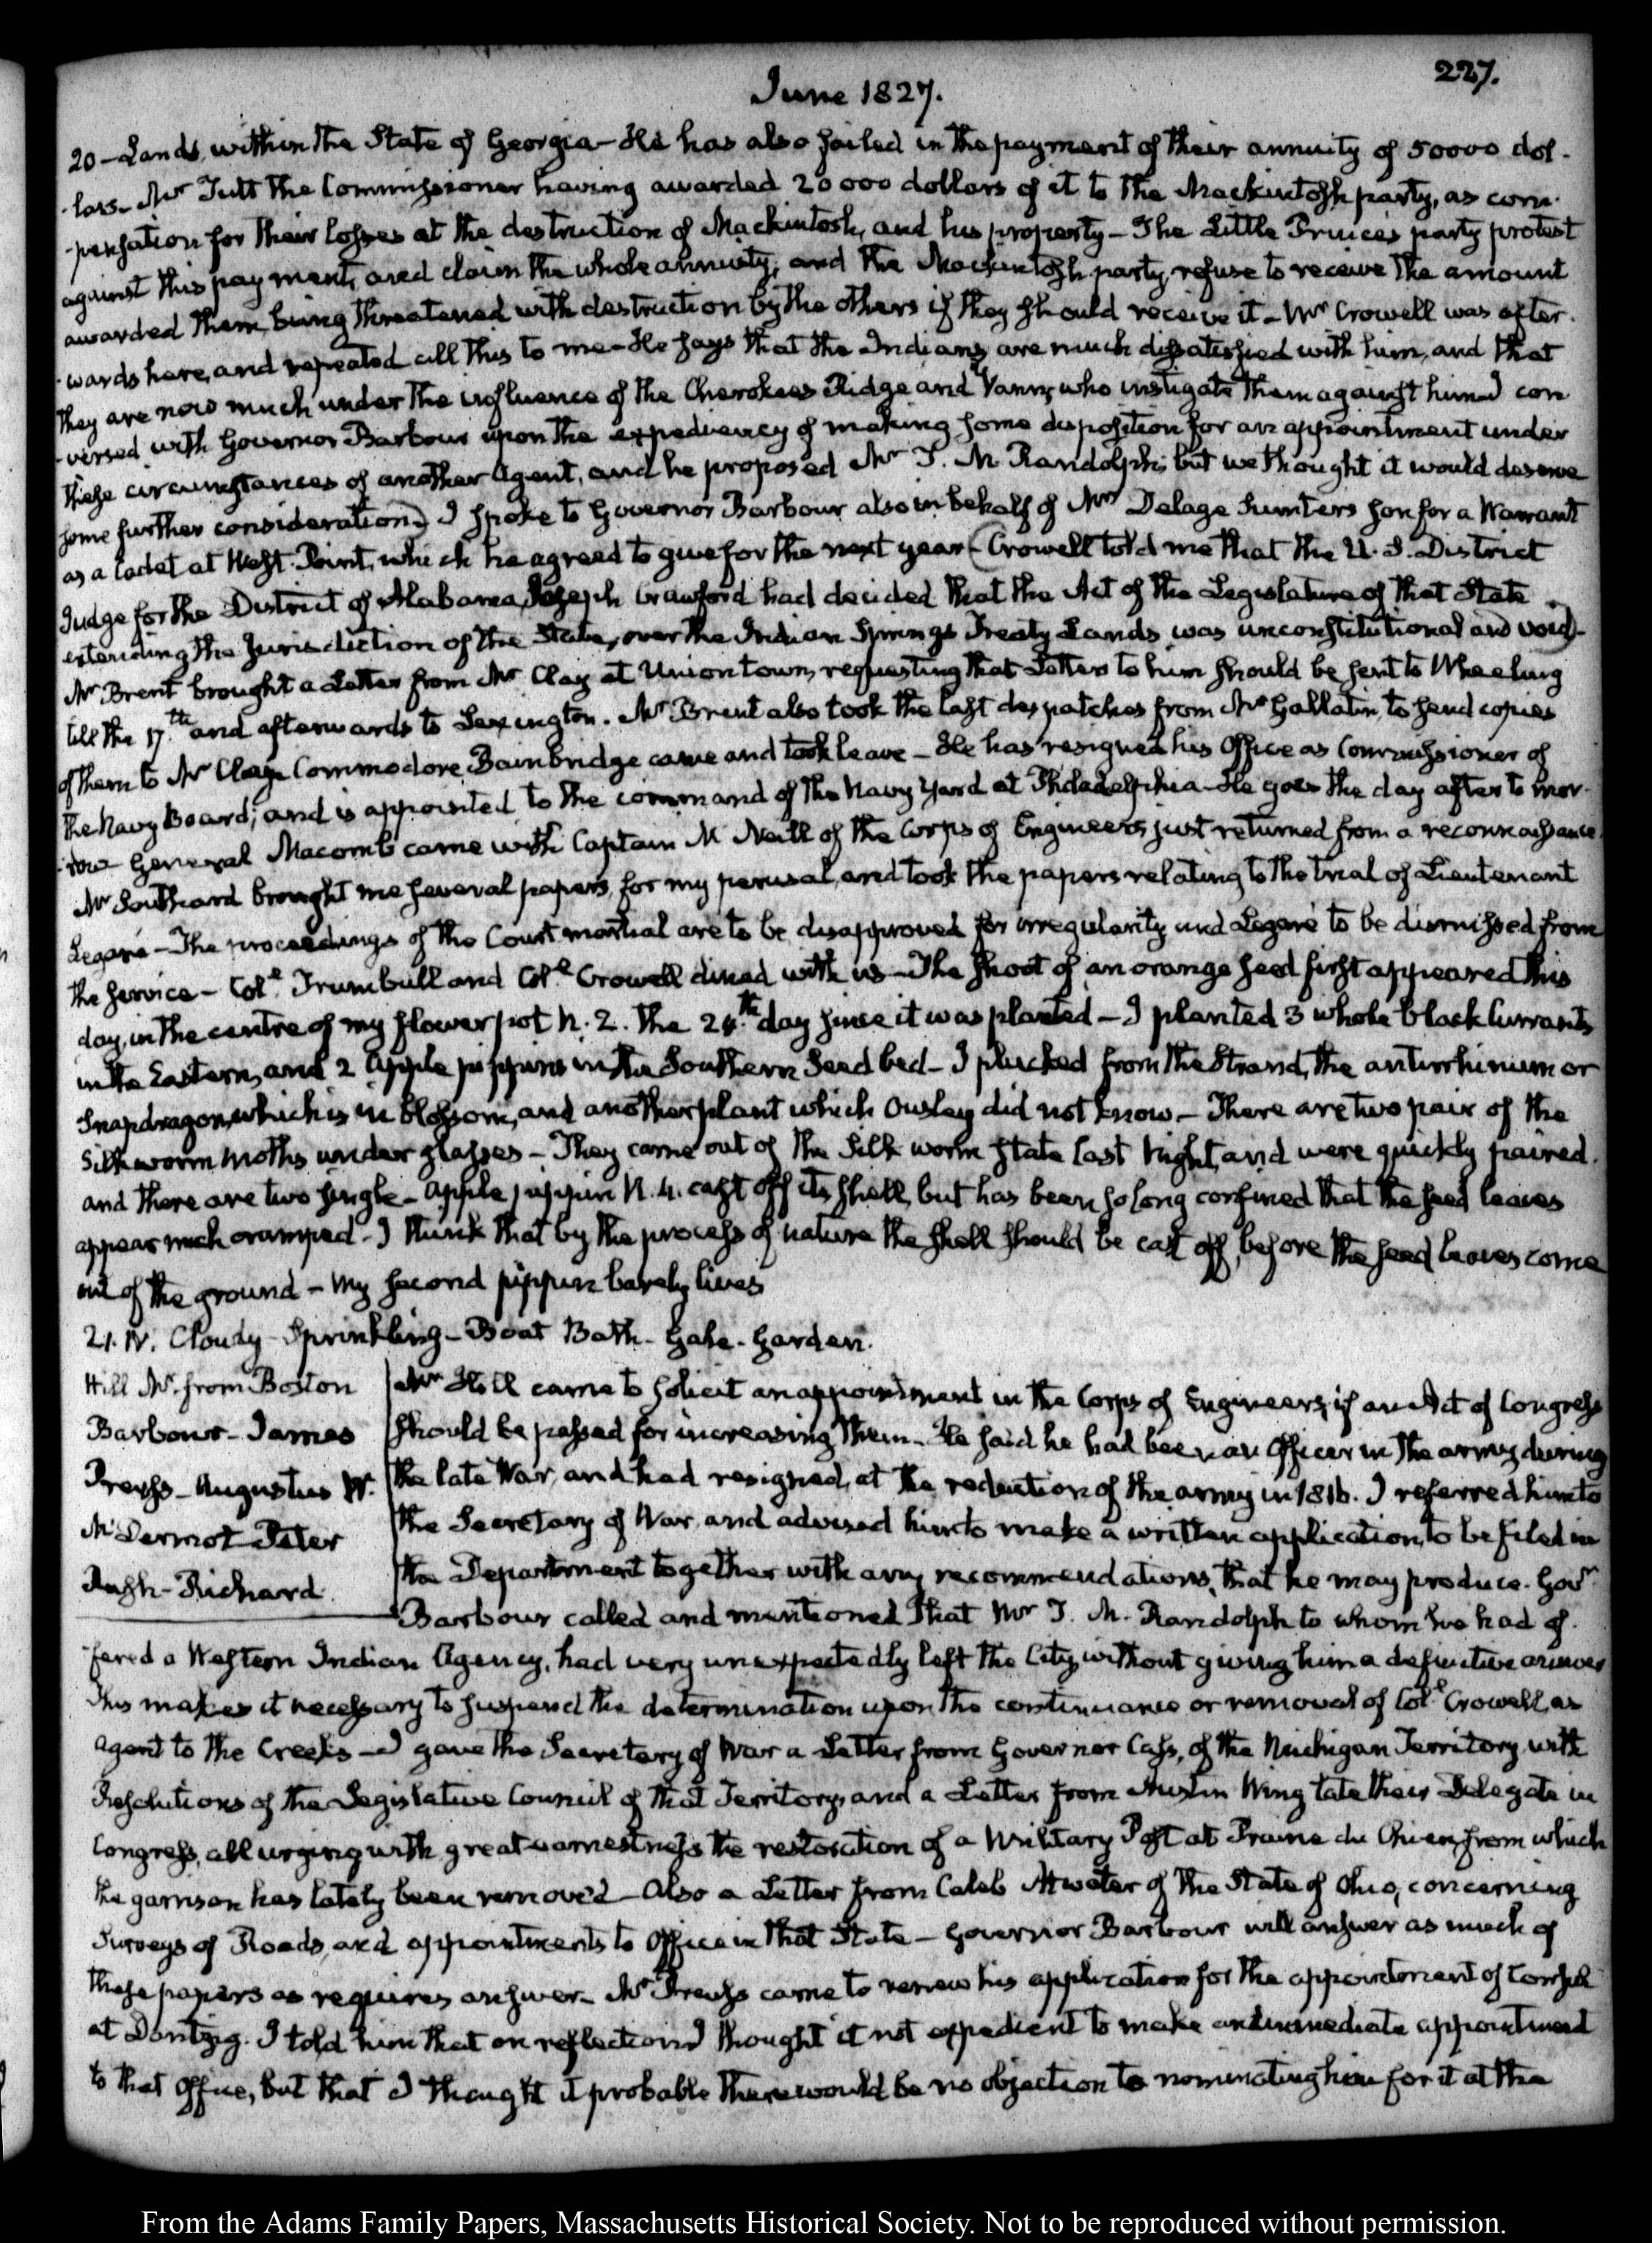 227.
June 1827.
20 - Lands, within the State of Georgia - He has also failed in the payment of their annuity of 50000 dol-
-lars - Mr Tutt the Commissioner having awarded 20000 dollars of it to the Mackintosh party, as com-
-pensation for their losses at the destruction of Mackintosh, and his property - The Little Prince's party protest
against this payment, and claim the whole annuity; and the Mackintosh party, refuse to receive the amount
awarded them, being threatened with destruction by the others if they should receive it - Mr Crowell was after-
-wards here, and repeated all this to me - He says that the Indians are much dissatisfied with him, and that
they are now much under the influence of the Cherokees Ridge and Vann, who instigate them against him. I con
-versed with Governor Barbour upon the expediency of making some disposition for an appointment under
these circumstances of another Agent, and he proposed Mr T. M. Randolph; but we thought it would deserve
some further consideration) I spoke to Governor Barbour also in behalf of Mrs Delage Sumters son for a Warrant
as a Cadet at West-Point, which he agreed to give for the next year - (Crowell told me that the U. S. District
Judge for the District of Alabama, Joseph Crawford had decided that the Act of the Legislature of that State
extending the Jurisdiction of the State, over the Indian Springs Treaty Lands was unconstitutional and void) -
Mr Brent brought a Letter from Mr Clay at Uniontown, requesting that Letters to him should be sent to Wheeling
till the 17th and afterwards to Lexington. Mr Brent also took the last despatches from Mr Gallatin, to send copies
of them to Mr Clay. Commodore Bainbridge came and took leave - He has resigned his Office as Commissioner of
the Navy Board; and is appointed to the command of the Navy Yard at Philadelphia - He goes the day after to mor-
-row General Macomb came with Captain M Neill of the Corps of Engineers, just returned from a reconnaissance.
Mr Southard brought me several papers, for my perusal, and took the papers relating to the trial of Lieutenant
Legaré - The proceedings of the Court martial are to be disapproved for irregularity and Legaré to be dismissed from
the service - Coll. Trumbull and Coll. Crowell dined with us - The shoot of an orange seed first appeared this
day, in the centre of my flower pot N. 2. The 24th day since it was planted - I planted 3 whole black Currants
in the Eastern, and 2 apple pippins in the Southern Seed bed - I plucked from the Strand, the antirrhinum or
Snapdragon, which is in blossom, and another plant which Ousley did not know - There are two pair of the
Silk worm moths under glasses - They came out of the Silk worm state last Night, and were quickly paired.
and there are two single - Apple pippin N. 4. cast off its shell, but has been so long confined that the seed leaves
appear much cramped - I think that by the process of nature the shell should be cast off, before the seed leaves come
out of the ground - My second pippin barely lives
21. IV. Cloudy - Sprinkling - Boat Bath - Gale - Garden.
Hill Mr. from Boston
Barbour - James
Preuss - Augustus W.
McDermot Peter
Rush - Richard
Mr Hill came to solicit an appointment in the Corps of Engineers, if an Act of Congress
should be passed for increasing them - He said he had been an Officer in the army during
the late War, and had resigned, at the reduction of the army in 1816. I referred him to
the Secretary of War, and advised him to make a written application, to be filed in
the Department together with any recommendations, that he may produce. Govr
Barbour called and mentioned that Mr T. M. Randolph to whom he had of-
-fered a Western Indian Agency, had very unexpectedly left the City, without giving him a definitive answer
This makes it necessary to suspend the determination upon the continuance or removal of Coll. Crowell, as
agent to the Creeks - I gave the Secretary of War a Letter from Governor Cass, of the Michigan Territory with
Resolutions of the Legislative Council of that Territory, and a Letter from Austin Wing late their Delegate in
Congress, all urging with great earnestness the restoration of a Military Post at Prairie du Chien, from which
the garrison has lately been removed - Also a Letter from Caleb Atwater of the State of Ohio, concerning
Surveys of Roads, and appointments to Office in that State - Governor Barbour will answer as much of
these papers as requires answer - Mr Preuss came to renew his application for the appointment of Consul
at Dantzig. I told him that on reflection I thought it not expedient to make an immediate appointment
to that Office, but that I thought it probable there would be no objection to nominating him for it at the
From the Adams Family Papers, Massachusetts Historical Society. Not to be reproduced without permission.